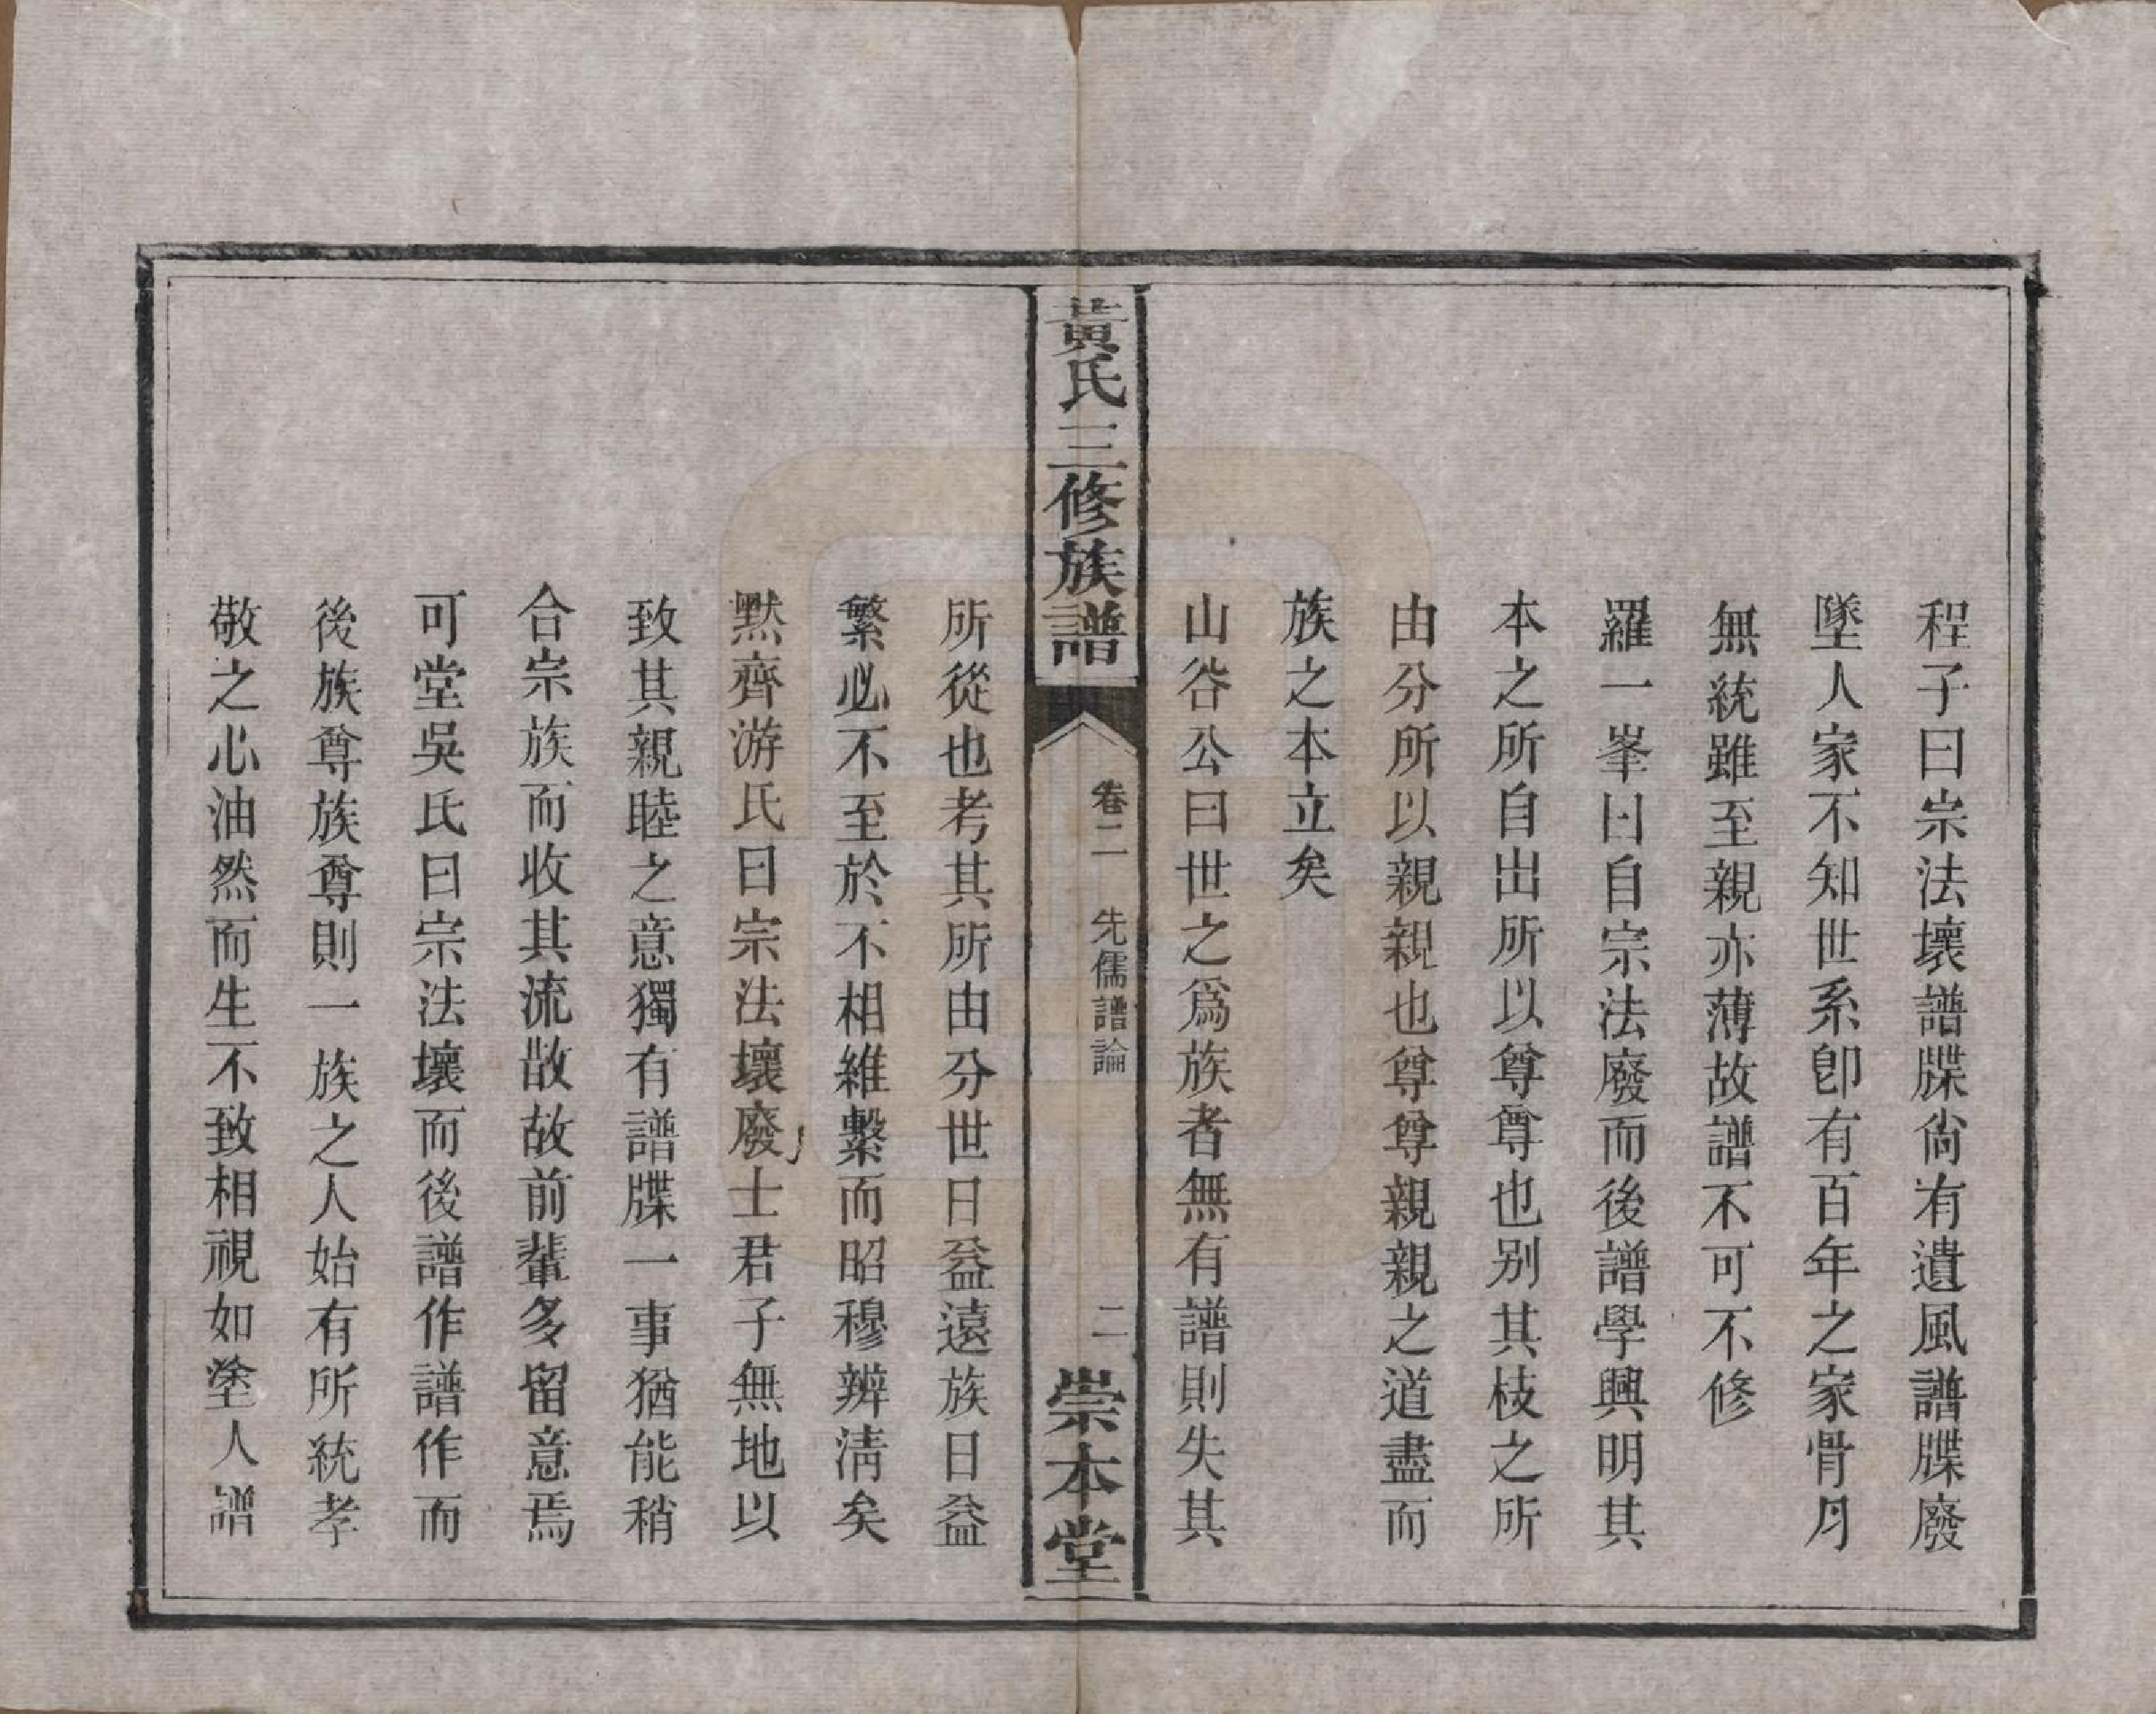 程子曰宗法壞譜牒尙有遺風譜牒廢
墜人家不知世系卽有百年之家骨月
無統雖至親亦薄故譜不可不修
羅一峯曰自宗法廢而後譜學興明其
本之所自出所以尊尊也别其枝之所
由分所以親親也尊尊親親之道盡而
族之本立矣
山谷公曰世之爲族者無有譜則失其
黃氏三修族譜
卷二 先儒譜論
二
崇本堂
所從也考其所由分世日益遠族日益
繁必不至於不相維繫而昭穆辨淸矣
默齊游氏曰宗法壞廢士君子無地以
致其親睦之意獨有譜牒一事猶能稍
合宗族而收其流散故前輩多留意焉
可堂吳氏曰宗法壞而後譜作譜作而
後族尊族尊則一族之人始有所統孝
敬之心油然而生不致相視如塗人譜